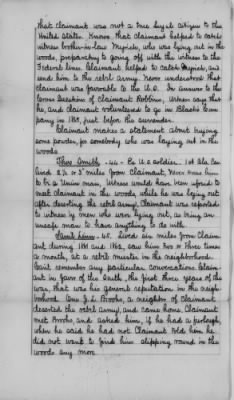 that Claimant was not a true loyal citizen to the
United States. Knows that Claimant helped to catch
witness' brother-in-law, who was lying out in the
woods, preparatory to going off with the witness to the
Federal lines. Claimant helped to catch and
send him to the rebel army. Never understood that
Claimant was favorable to the U.S. In answer to the
Robbins, witness says that
he, and Claimant volunteered to go in com-
pany in 186, just before the surrender.
Claimant makes a statement about buying
some powder, for somebody who was laying out in the
woods.
Thos Smith - 44 - Ex U.S. soldier. 1st Ala. Cav.
Lived 2½ or 3 miles from Claimant, never knew him
to be a Union man. Witness would have been afraid to
meet Claimant in the woods, while he was lying out
after deserting the rebel army, Claimant was reported
to witness by men who were lying out, as being an
unsafe man to have anything to do with.
45. Lived six miles from Claim-
ant during 1861 and 1862, saw him two or three times
a month, at a rebel muster in the neighborhood.
Can't remember any particular conversations. Claim-
ant in favor of the South, the first three years of the
war, that was his general reputation in the neigh-
borhood. One J. L. Brooks, a neighbor of Claimant
deserted the rebel army, and came home, Claimant
met Brooks, and asked him, if he had a furlough,
when he said he had not Claimant told him he
did not want to find him slipping round in the
woods any more